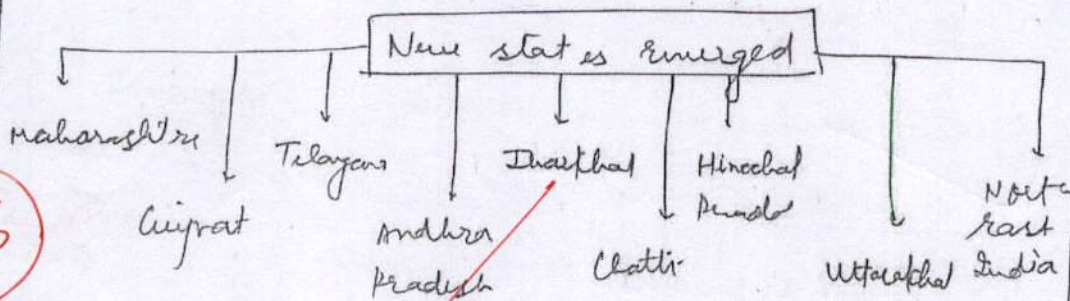 New states emerged
Maharashtra
Gujrat
Telangana
Andhra
Pradesh
Jharkhand
Chatti-
Himachal
Pradesh
Uttarakhand
North
East
India